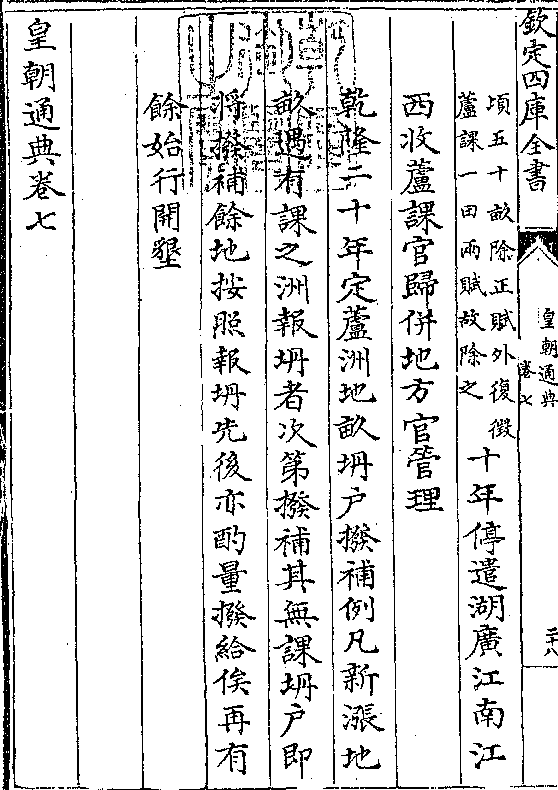 欽定四庫全書
皇朝通典
卷七
二十八
頃五十畝除正賦外復徴
蘆課一田兩賦故除之
十年停遣湖廣江南江
西收蘆課官歸併地方官管理
乾隆二十年定蘆洲地畝坍户撥補例凡新漲地
畝遇有課之洲報坍者次第撥補其無課坍户即
將撥補餘地按照報坍先後亦酌量撥給俟再有
餘始行開墾
皇朝通典卷七